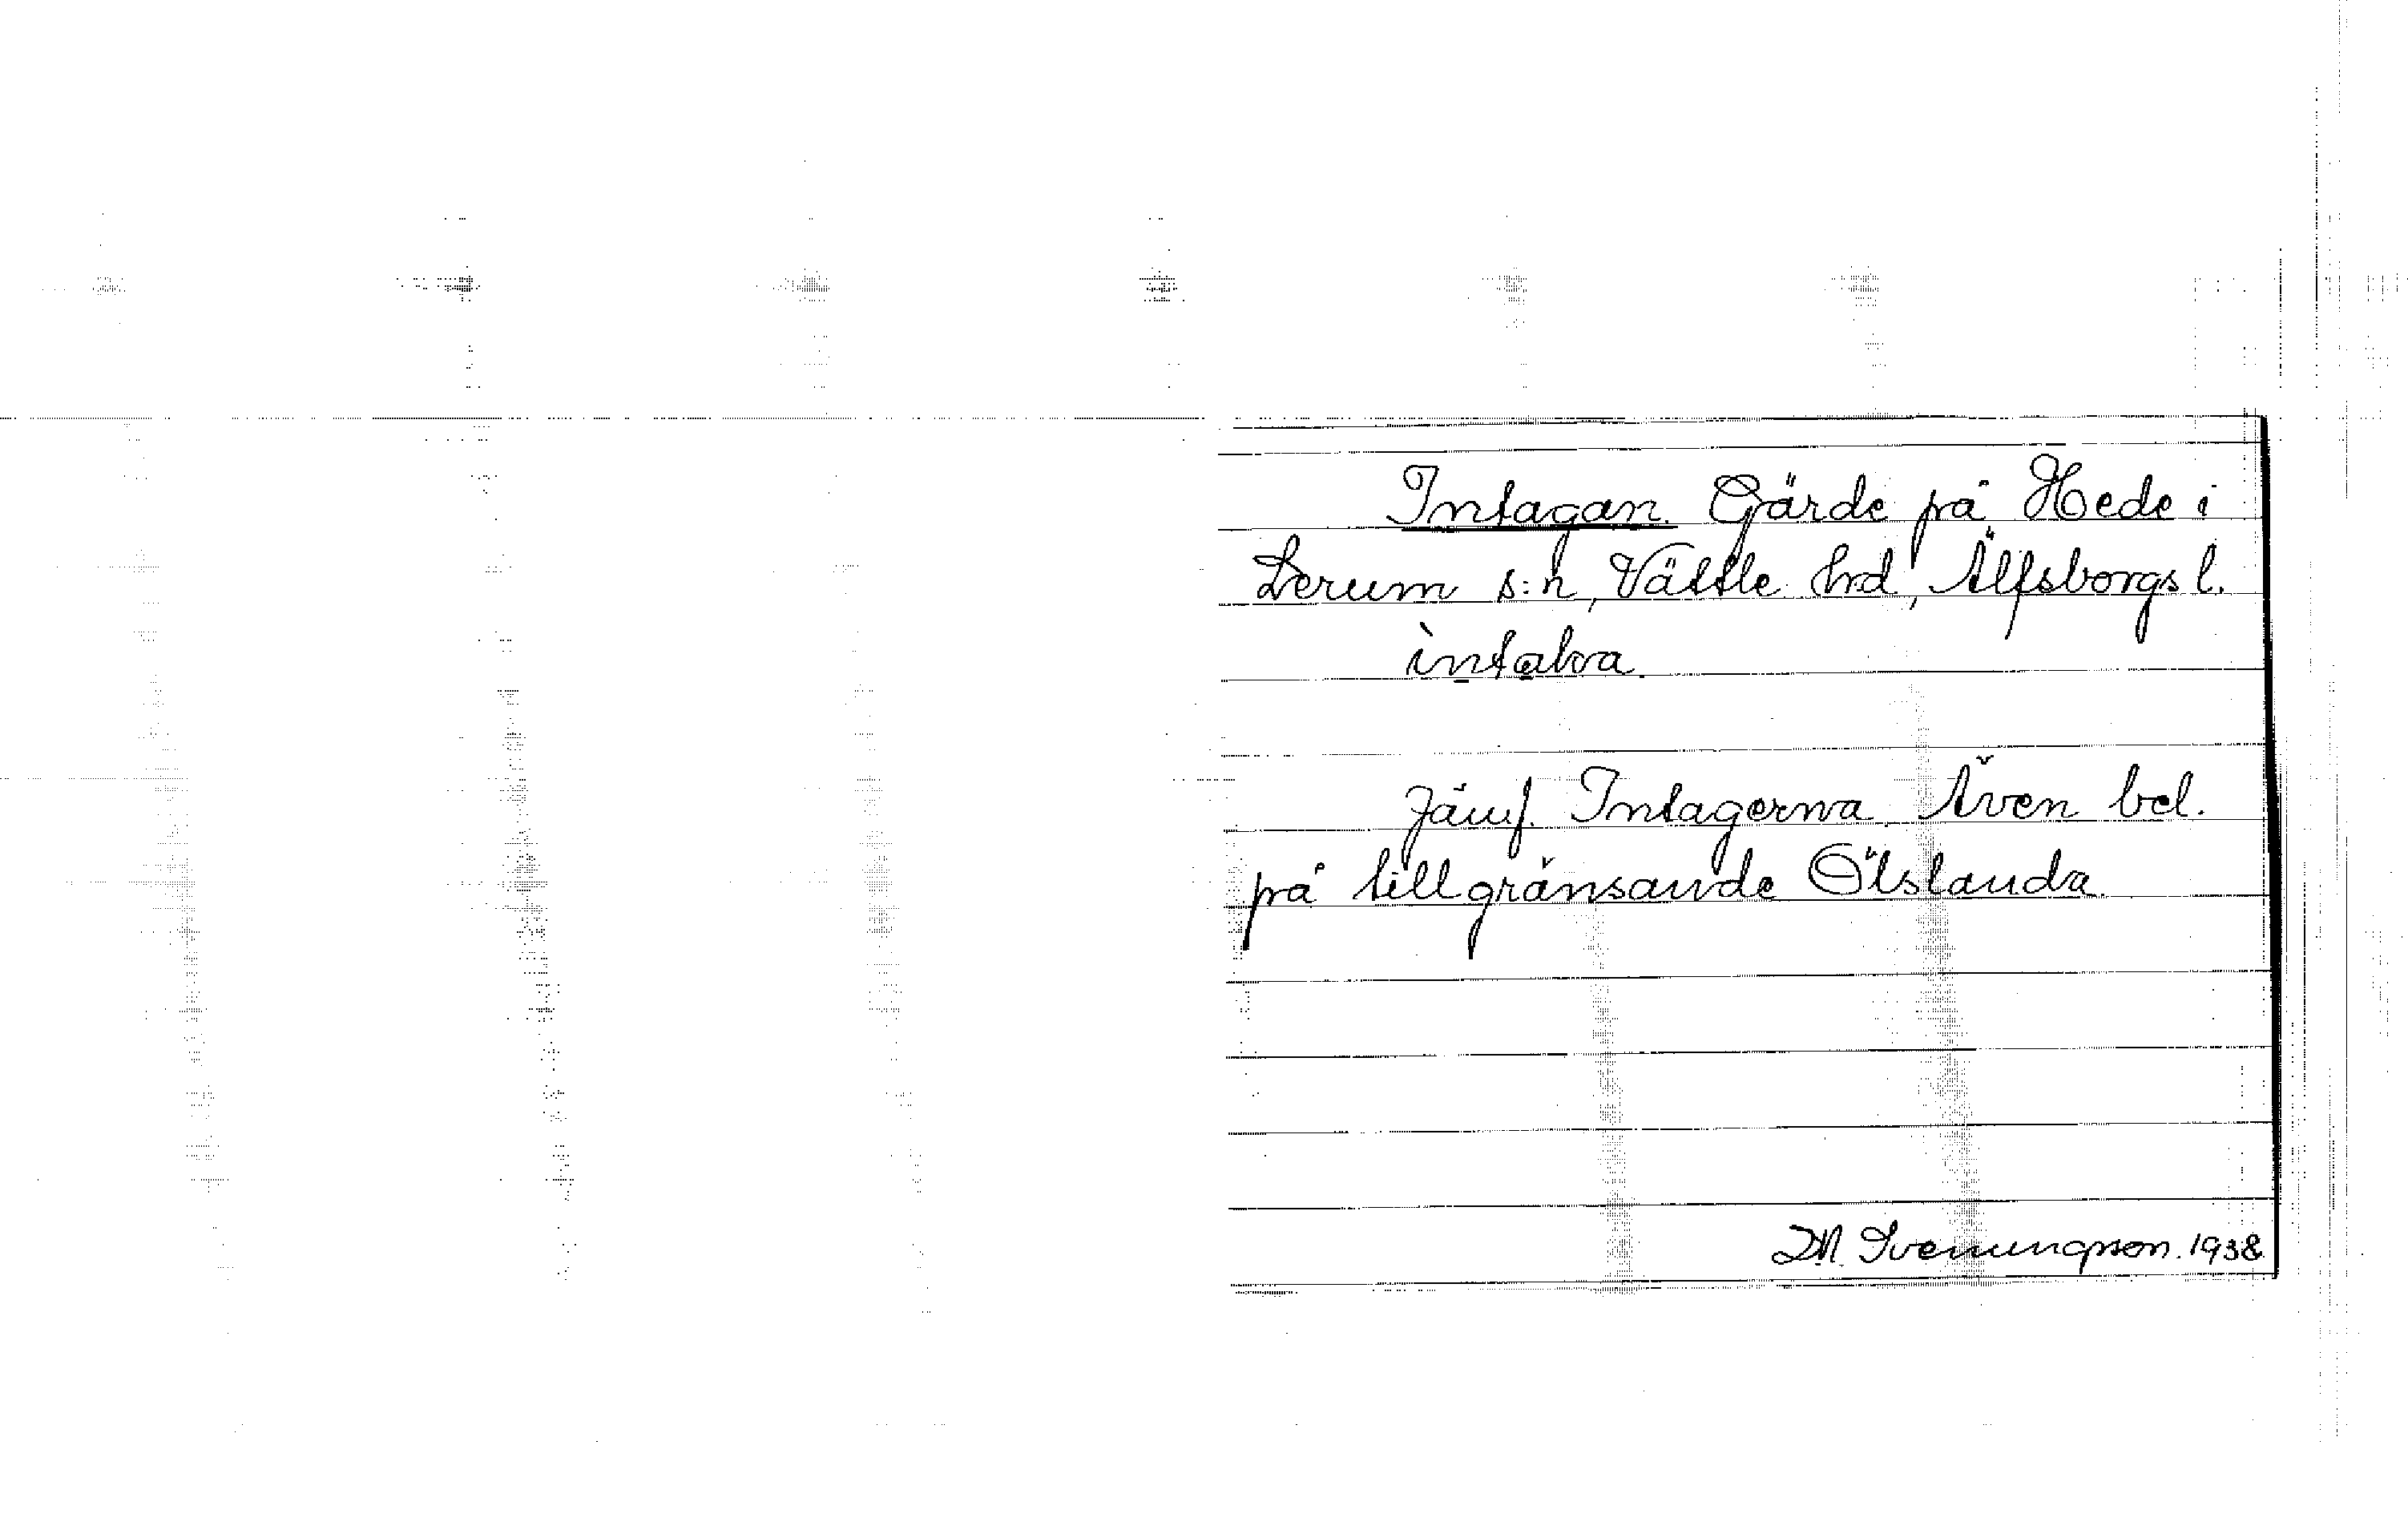 Intagan. Gärde på Hede i
Lerum s:n, Vättle hrd, Älfsborgs l.
intakra.
Jämf. Intagerna. Även bel.
på tillgränsande Ölslanda.
M. Svenungsson. 1938